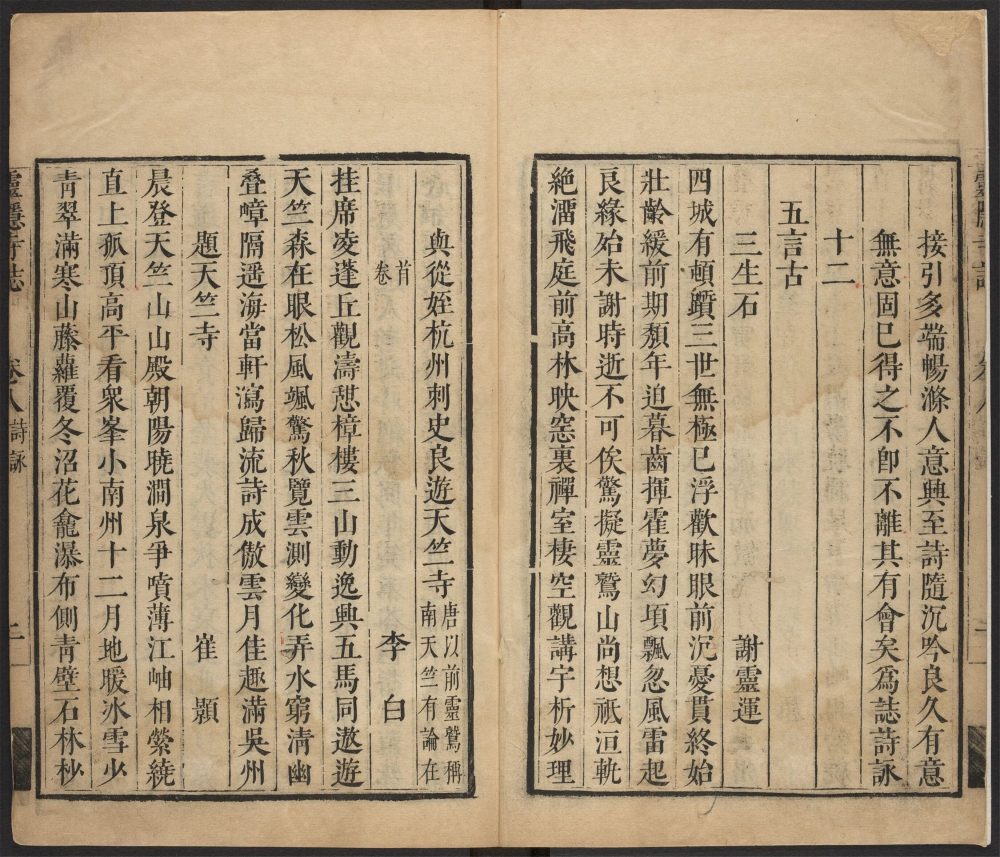 接引多端暢滌人意興至詩隨沉吟良久有意
無意固已得之不卽不離其有會矣爲誌詩詠
十二
五言古
三生石　謝靈運
四城有頓躓三世無極已浮歡昧眼前沉憂貫終始
壯齡緩前期頹年迫暮齒揮霍夢幻頃飄忽風雷起
良緣始未謝時逝不可俟驚擬靈鷲山尚想祇洹軌
絶溜飛庭前高林映窓裏禪室棲空觀講宇析妙理
與從姪杭州刺史良遊天竺寺唐以前靈鷲稱南天竺有論在
首卷　李白
挂席凌蓬丘觀濤憇樟樓三山動逸興五馬同遨遊
天竺森在眼松風颯驚秋覽雲測變化弄水窮清幽
叠嶂隔遥海當軒瀉歸流詩成傲雲月佳趣滿吳州
題天竺寺　崔顥
晨登天竺山山殿朝陽曉澗泉爭噴薄江岫相縈繞
直上孤頂高平看衆峯小南州十二月地暖氷雪少
靑翠滿寒山藤蘿覆冬沼花龕瀑布側靑壁石林杪
靈隱寺誌　卷八　詩詠　二